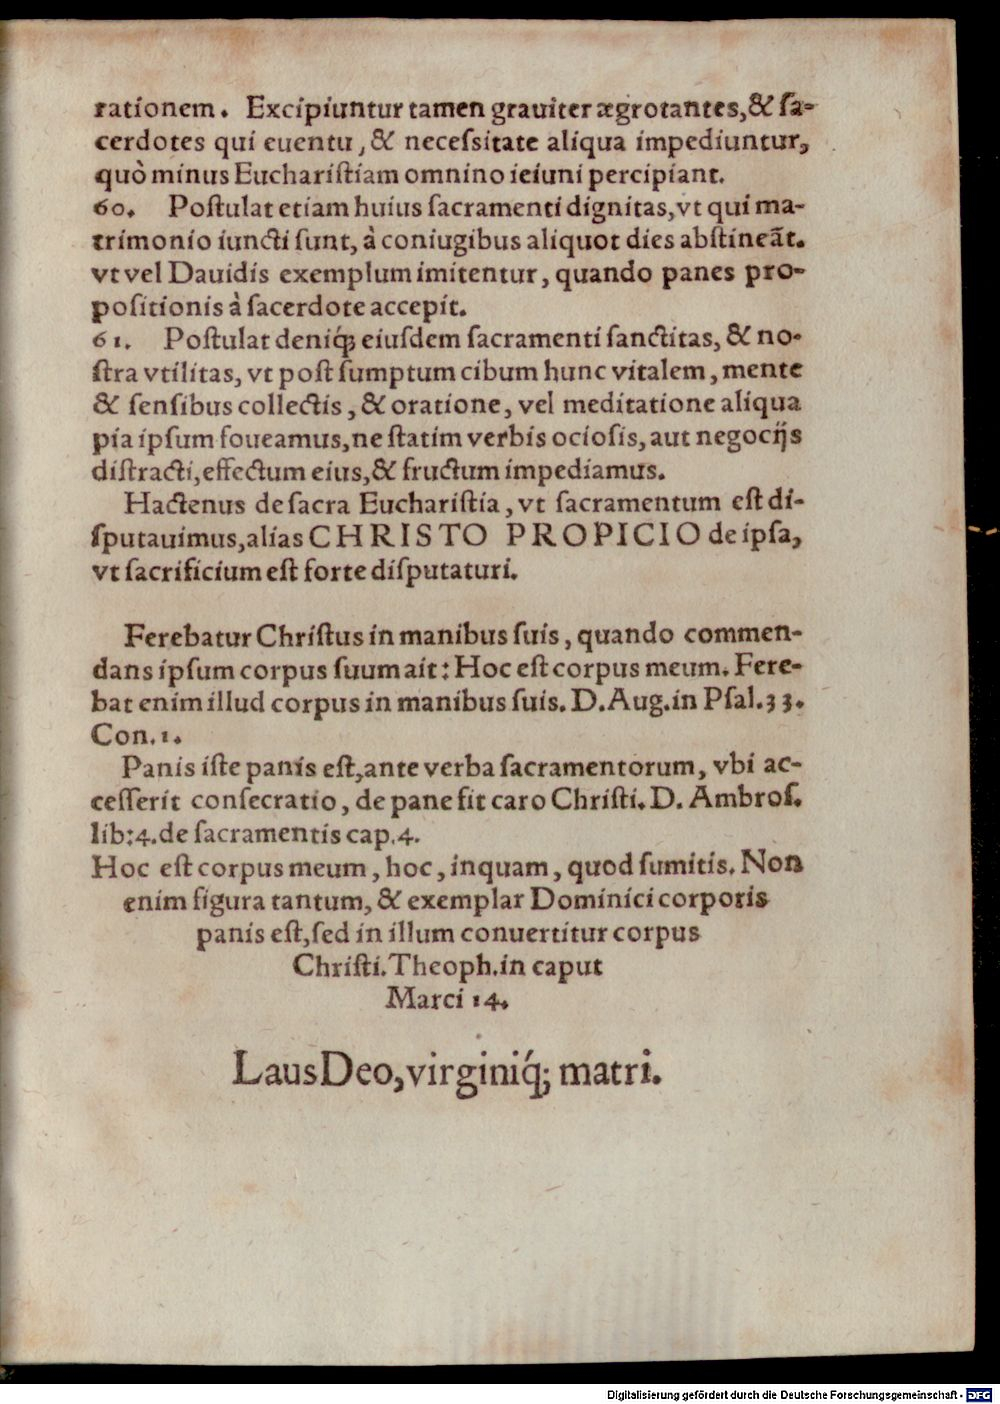 rationem. Excipiuntur tamen grauiter ægrotantes,& ſa-
cerdotes qui euentu, & neceſsitate aliqua impediuntur,
quò minus Euchariſtiam omnino ieiuni percipiant.
60. Poſtulat etiam huius ſacramenti dignitas,vt qui ma-
trimonio iuncti ſunt, à coniugibus aliquot dies abſtineãt.
vt vel Dauidis exemplum imitentur, quando panes pro-
poſitionis à ſacerdote accepit.
61. Poſtulat deniq́; eiuſdem ſacramenti ſanctitas, & no-
ſtra vtilitas, vt poſt ſumptum cibum hunc vitalem, mente
& ſenſibus collectis, & oratione, vel meditatione aliqua
pia ipſum foueamus,ne ſtatim verbis ocioſis, aut negocijs
diſtracti, effectum eius,& fructum impediamus.
Hactenus de ſacra Euchariſtia, vt ſacramentum eſt di-
ſputauimus,alias CHRISTO PROPICIO de ipſa,
vt ſacrificium eſt forte diſputaturi.
Ferebatur Chriſtus in manibus ſuis, quando commen-
dans ipſum corpus ſuum ait: Hoc eſt corpus meum. Fere-
bat enim illud corpus in manibus ſuis. D. Aug. in Pſal. 33.
Con. 1.
Panis iſte panis eſt,ante verba ſacramentorum, vbi ac-
ceſſerit conſecratio, de pane fit caro Chriſti. D. Ambroſ.
lib:4. de ſacramentis cap. 4.
Hoc eſt corpus meum, hoc, inquam, quod ſumitis. Non
enim figura tantum, & exemplar Dominici corporis
panis eſt, ſed in illum conuertitur corpus
Chriſti. Theoph. in caput
Marci 14.
Laus Deo, virginiq́; matri.
Digitalisierung gefördert durch die Deutsche Forschungsgemeinschaft - DFG